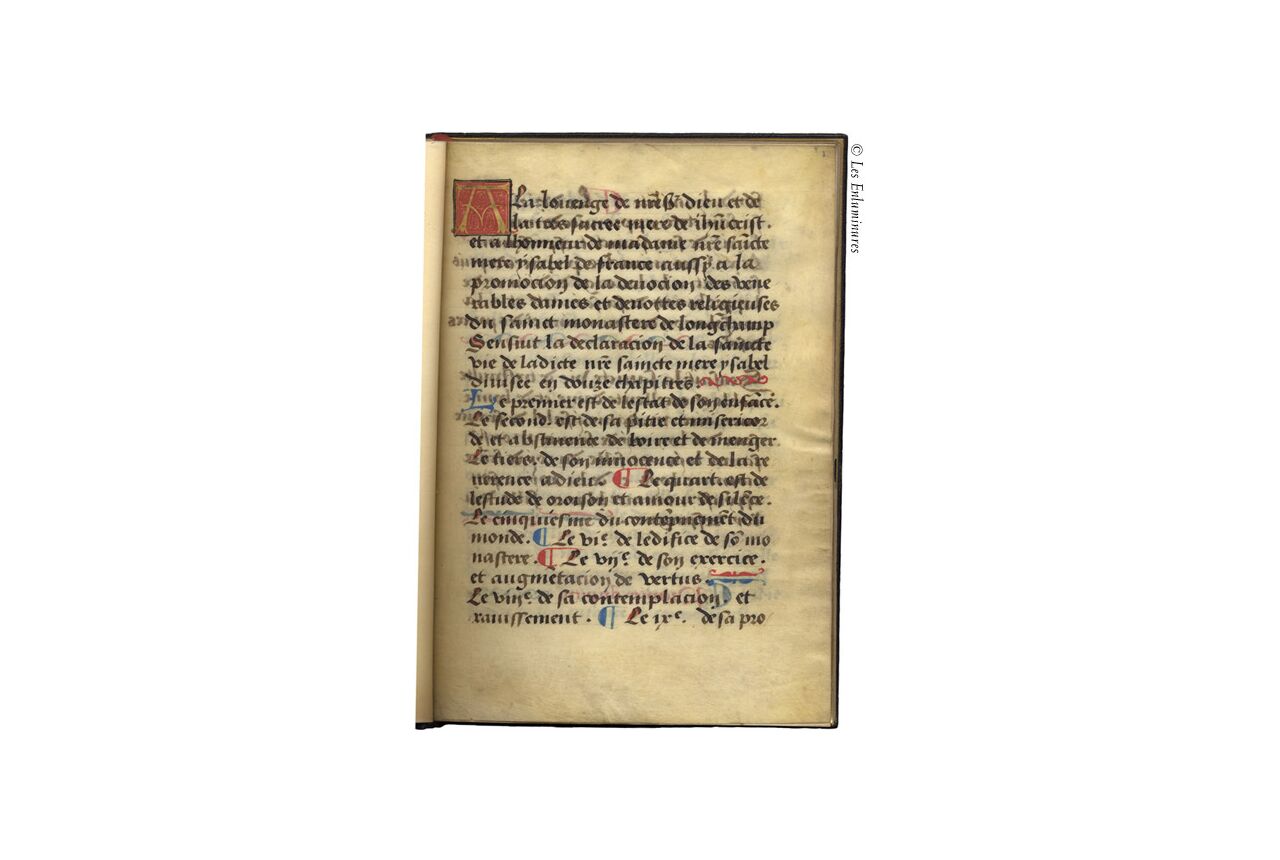 A la louenge de nr̃e S̃r dieu et de
la tres sacree mere de ih̃ucrist .
et a lhonneur de madame nr̃e saincte
mere ysabel de france aussy a la
promocion de la deuocion des vene
rables dames et deuottes religieuses
du sainct monastere de longchamp
Sensuit la declaracion de la saincte
vie de ladicte nr̃e saincte mere ysabel
diuisee en douze chapitres .
Le premier est de lestat de son enfãce .
Le second est de sa pitie et misericor
de et abstinence de boire et de menger .
Le tiers . de son innocence et de la re
uerence a dieu . ¶ Le quart . est de
lestude de oroison et amour de silẽce .
Le cinquiesme du contẽpnemẽt du
monde . ¶ Le viᵉ. de ledifice de sõ mo
nastere . ¶ Le vijᵉ. de son exercice .
et augmẽtacion de vertus .
Le viijᵉ. de sa contemplacion . et
rauissement . ¶ Le ixᵉ. de sa pro
© Les Enluminures